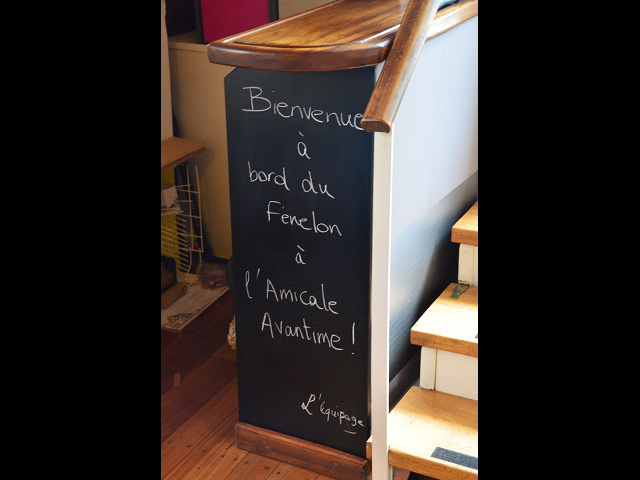 Bienvenue
à
bord du
Fénelon
à
l'Amicale
Avantime!
L'Équipage